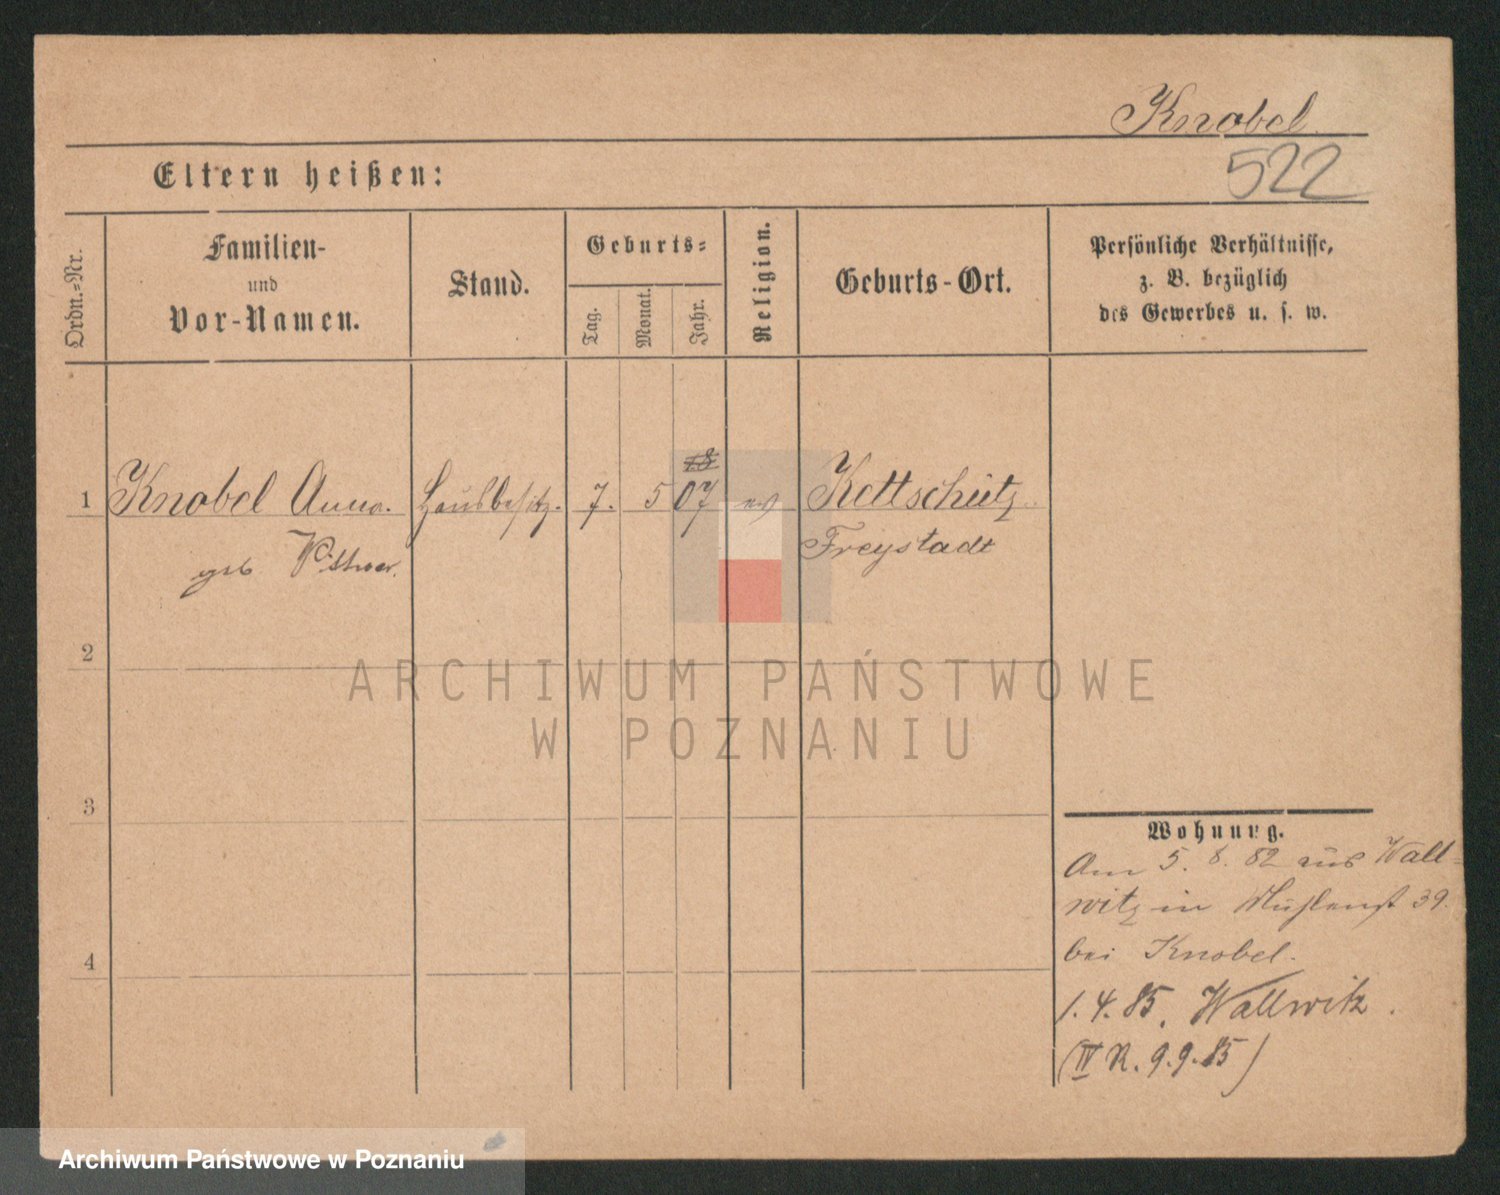 Knobel
522
Eltern heißen:
Ordn.-Nr.
Familien-
und
Vor-Namen.
Stand.
Geburts-
Tag.
Monat.
Jahr.
Religion.
Geburts-Ort.
Persönliche Verhältnisse,
z. B. bezüglich
des Gewerbes u. s. w.
18
1 Knobel Anna. Hausbesitz. 7. 5 07 ev Kettschütz
geb Freystadt
2
ARCHIWUM PAŃSTWOWE
W POZNANIU
3
4
Wohnung.
Am 5. 8. 82 aus Wall-
witz in Mühlenst 39.
bei Knobel.
1. 4. 85. Wallwitz.
(IV R. 9.9.85)
Archiwum Państwowe w Poznaniu